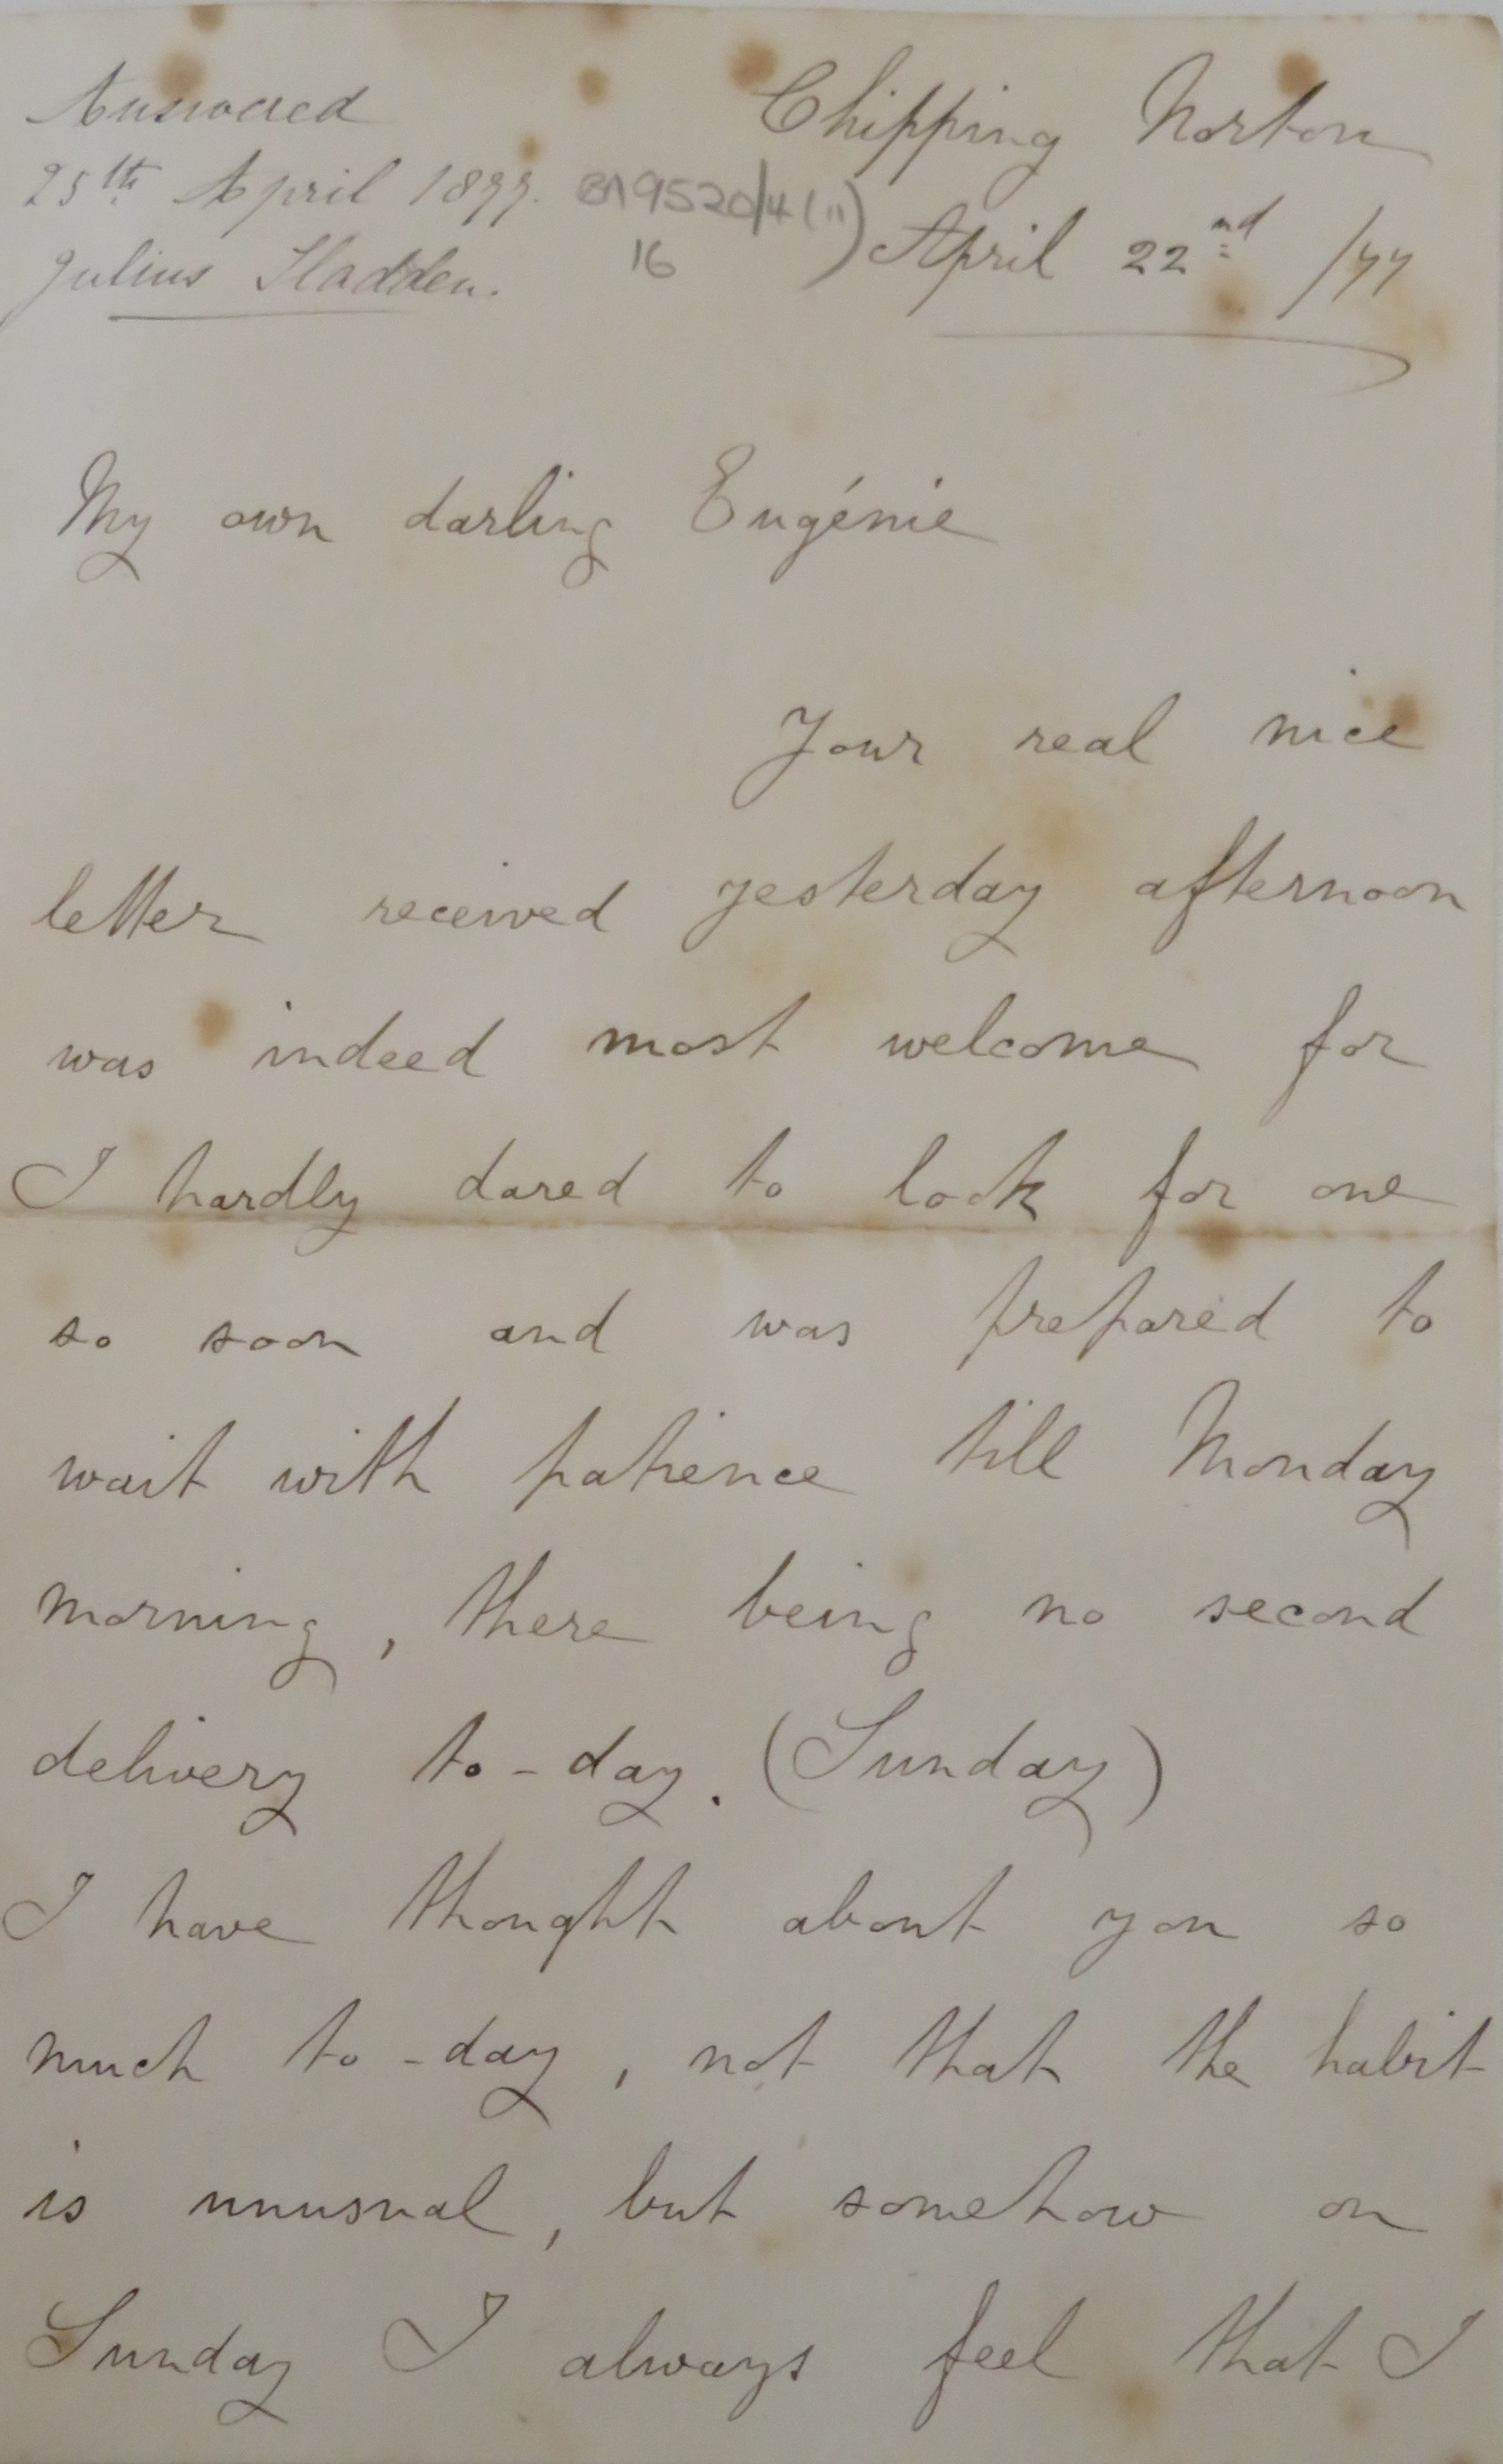 Answered
25th April 1877.
Julius Sladden.
BA9520/4(ii)
16
Chipping Norton
April 22nd /77
My own darling Eugénie
Your real nice
letter received yesterday afternoon
was indeed most welcome for
I hardly dared to look for one
so soon and was prepared to
wait with patience till Monday
morning, there being no second
delivery to-day. (Sunday)
I have thought about you so
much to-day, not that the habit
is unusual, but somehow on
Sunday I always feel that I